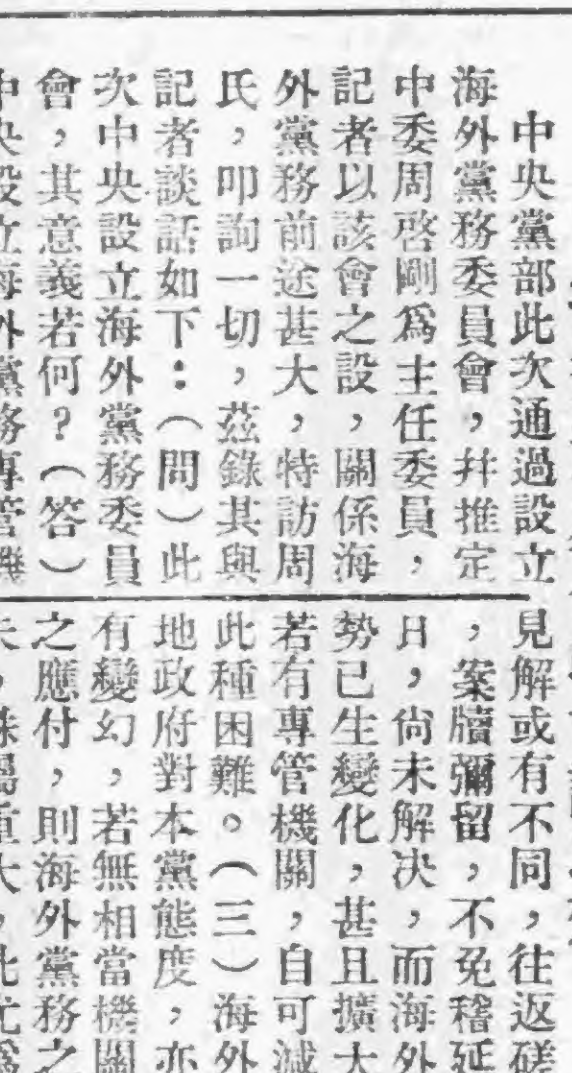 中央黨部此次通過設立
海外黨務委員會，幷推定
中委周啓剛爲主任委員，
記者以該會之設，關係海
外黨務前途甚大，特訪周
氏，叩詢一切，茲錄其與
記者談話如下：（問）此
次中央設立海外黨務委員
會，其意義若何？（答）
中央設立海外黨務專管機
見解或有不同，往返磋
，案牘彌留，不免稽延
日，尙未解决，而海外
勢已生變化，甚且擴大
若有專管機關，自可減
此種困難。（三）海外
地政府對本黨態度，亦
有變幻，若無相當機關
之應付，則海外黨務之
失，殊屬重大，此尤爲